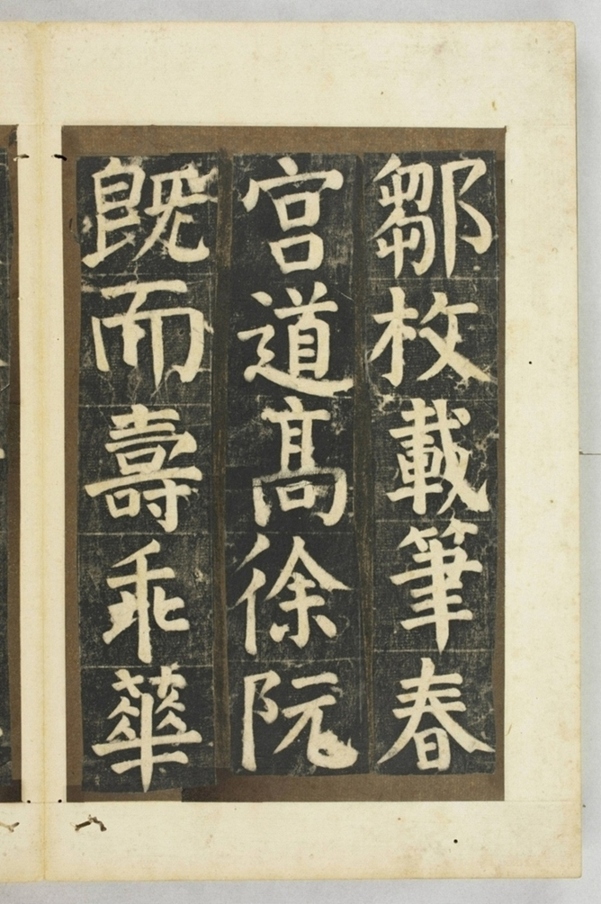 鄒枚載筆春
宮道髙徐阮
既而壽乖華